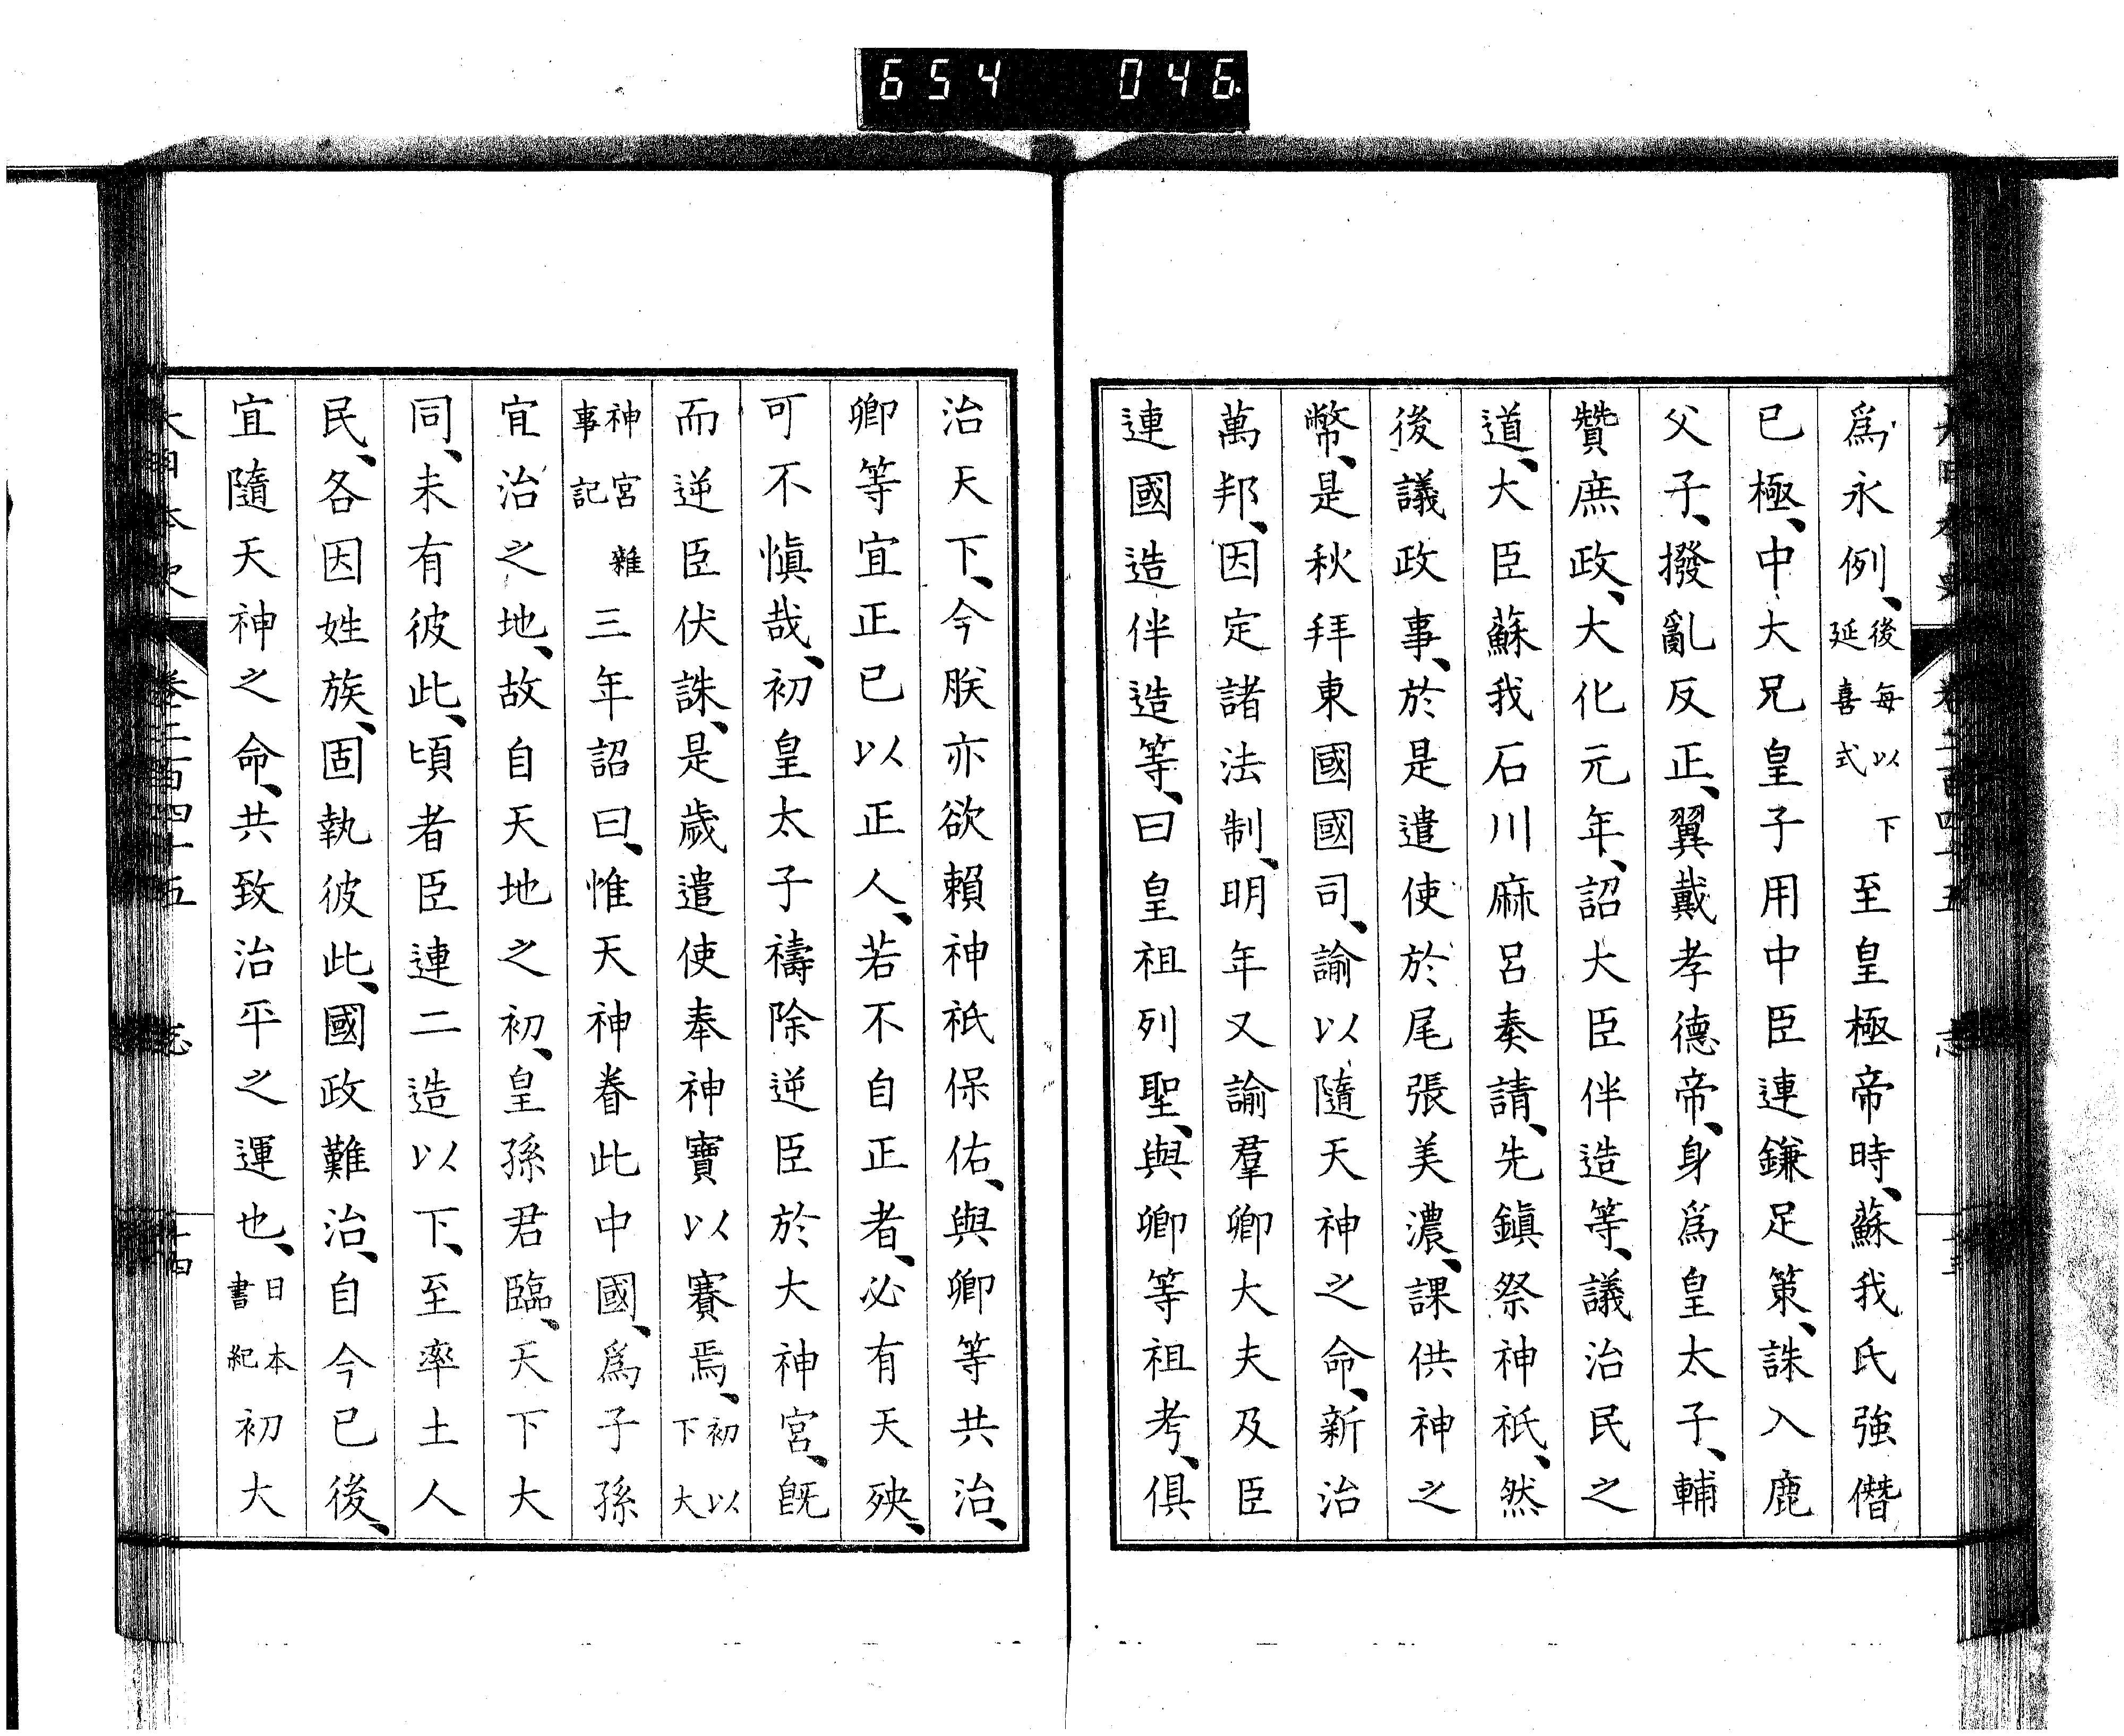 654 046
爲永例、後每以下延喜式至皇極帝時、蘇我氏強僭
已極、中大兄皇子用中臣連鎌足策、誅入鹿
父子、撥亂反正、翼戴孝德帝、身爲皇太子、輔
贊庶政、大化元年、詔大臣伴造等、議治民之
道、大臣蘇我石川麻呂奏請、先鎭祭神祇、然
後議政事、於是遣使於尾張美濃、課供神之
幣、是秋拜東國國司、諭以隨天神之命、新治
萬邦、因定諸法制、明年又諭羣卿大夫及臣
連國造伴造等、曰皇祖列聖、與卿等祖考、俱
治天下、今朕亦欲賴神祇保佑、與卿等共治、
卿等宜正已以正人、若不自正者、必有天殃、
可不愼哉、初皇太子禱除逆臣於大神宮、旣
而逆臣伏誅、是歲遣使奉神寶以賽焉、初以下大
神宮雜事記三年詔曰、惟天神眷此中國、爲子孫
宜治之地、故自天地之初、皇孫君臨、天下大
同、未有彼此、頃者臣連二造以下、至率土人
民、各因姓族、固執彼此、國政難治、自今已後、
宜隨天神之命、共致治平之運也、日本書紀初大
大日本史 卷二百四十五 志